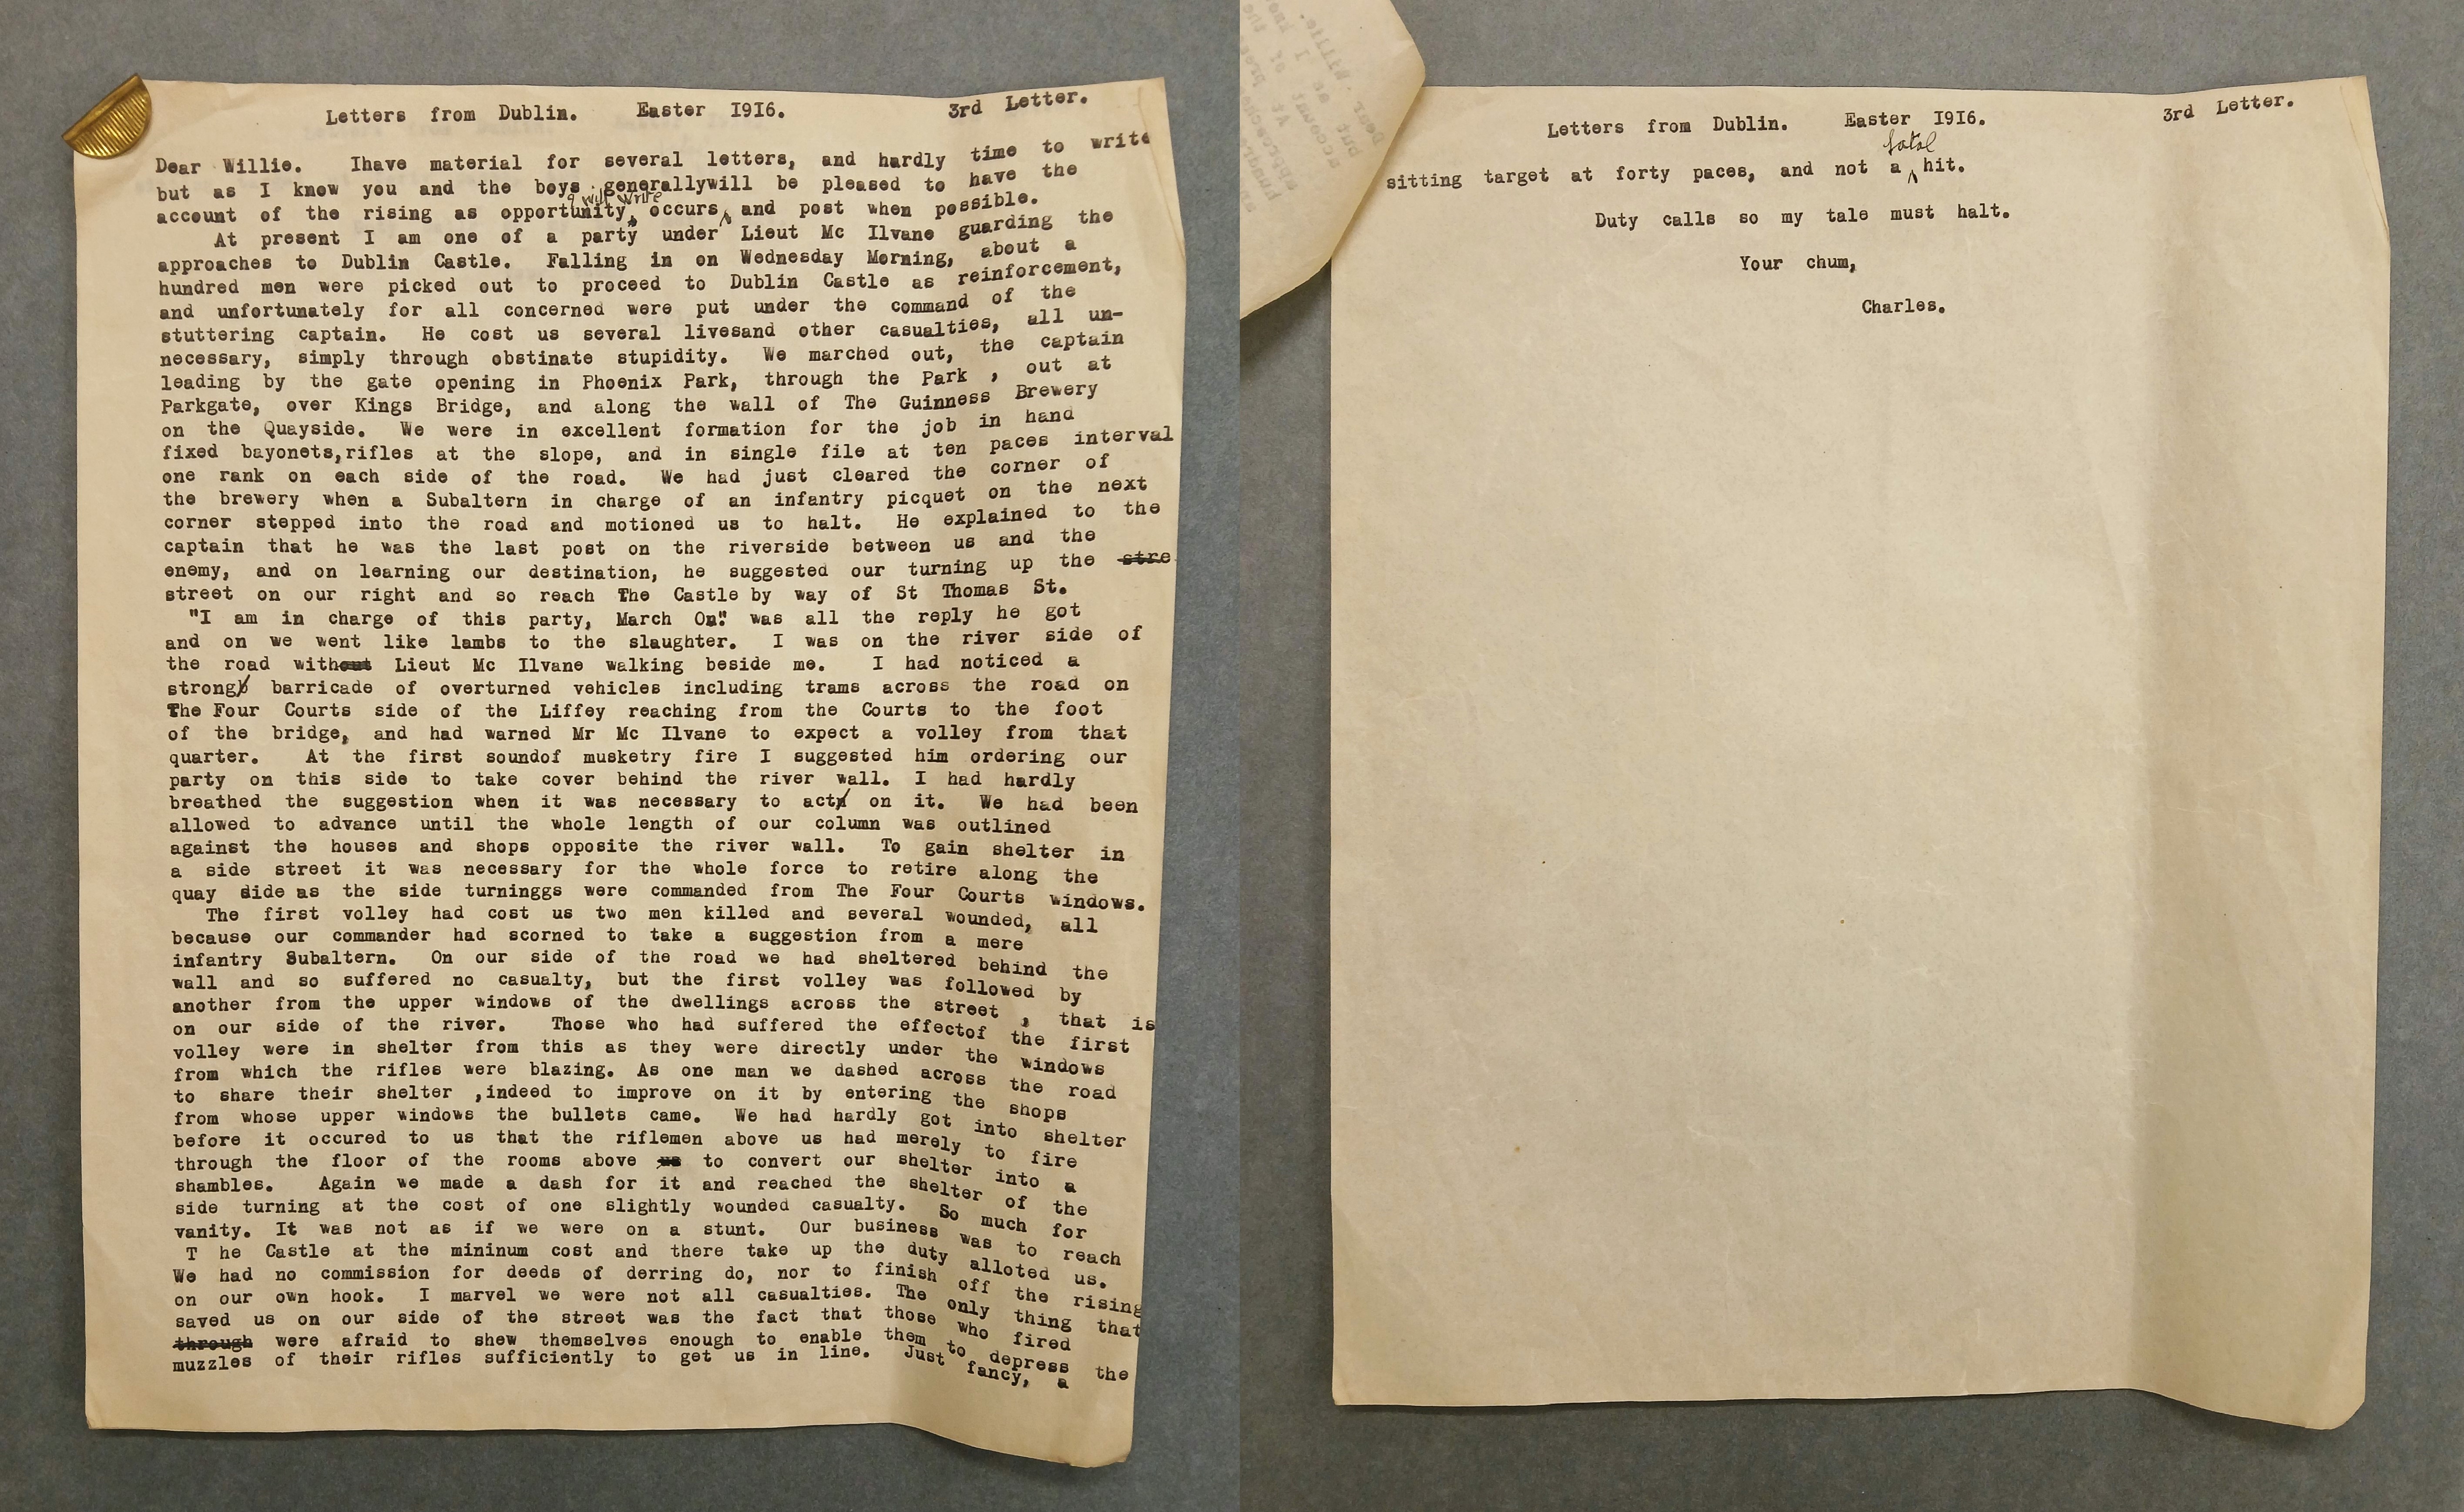 Letters from Dublin. Easter I9I6. 3rd Letter.
Dear Willie. Ihave material for several letters, and hardly time to write
but as I know you and the boys generallywill be pleased to have the
I will write
account of the rising as opportunity, occurs, and post when possible.
At present I am one of a party under Lieut Mc Ilvane guarding the
approaches to Dublin Castle. Falling in on Wednesday Morning, about a
hundred men were picked out to proceed to Dublin Castle as reinforcement,
and unfortunately for all concerned were put under the command of the
stuttering captain. He cost us several livesand other casualties, all un-
necessary, simply through obstinate stupidity. We marched out, the captain
leading by the gate opening in Phoenix Park, through the Park , out at
Parkgate, over Kings Bridge, and along the wall of The Guinness Brewery
on the Quayside. We were in excellent formation for the job in hand
fixed bayonets,rifles at the slope, and in single file at ten paces interval
one rank on each side of the road. We had just cleared the corner of
the brewery when a Subaltern in charge of an infantry picquet on the next
corner stepped into the road and motioned us to halt. He explained to the
captain that he was the last post on the riverside between us and the
enemy, and on learning our destination, he suggested our turning up the stre
street on our right and so reach The Castle by way of St Thomas St.
"I am in charge of this party, March On". was all the reply he got
and on we went like lambs to the slaughter. I was on the river side of
the road without Lieut Mc Ilvane walking beside me. I had noticed a
strong barricade of overturned vehicles including trams across the road on
The Four Courts side of the Liffey reaching from the Courts to the foot
of the bridge, and had warned Mr Mc Ilvane to expect a volley from that
quarter. At the first soundof musketry fire I suggested him ordering our
party on this side to take cover behind the river wall. I had hardly
breathed the suggestion when it was necessary to act on it. We had been
allowed to advance until the whole length of our column was outlined
against the houses and shops opposite the river wall. To gain shelter in
a side street it was necessary for the whole force to retire along the
quay side as the side turninggs were commanded from The Four Courts windows.
The first volley had cost us two men killed and several wounded, all
because our commander had scorned to take a suggestion from a mere
infantry Subaltern. On our side of the road we had sheltered behind the
wall and so suffered no casualty, but the first volley was followed by
another from the upper windows of the dwellings across the street , that is
on our side of the river. Those who had suffered the effectof the first
volley were in shelter from this as they were directly under the windows
from which the rifles were blazing. As one man we dashed across the road
to share their shelter ,indeed to improve on it by entering the shops
from whose upper windows the bullets came. We had hardly got into shelter
before it occured to us that the riflemen above us had merely to fire
through the floor of the rooms above us to convert our shelter into a
shambles. Again we made a dash for it and reached the shelter of the
side turning at the cost of one slightly wounded casualty. So much for
vanity. It was not as if we were on a stunt. Our business was to reach
T he Castle at the mininum cost and there take up the duty alloted us.
We had no commission for deeds of derring do, nor to finish off the rising
on our own hook. I marvel we were not all casualties. The only thing that
saved us on our side of the street was the fact that those who fired
through were afraid to shew themselves enough to enable them to depress the
muzzles of their rifles sufficiently to get us in line. Just fancy, a
Letters from Dublin. Easter I9I6. 3rd Letter.
fatal
sitting target at forty paces, and not a hit.
Duty calls so my tale must halt.
Your chum,
Charles.